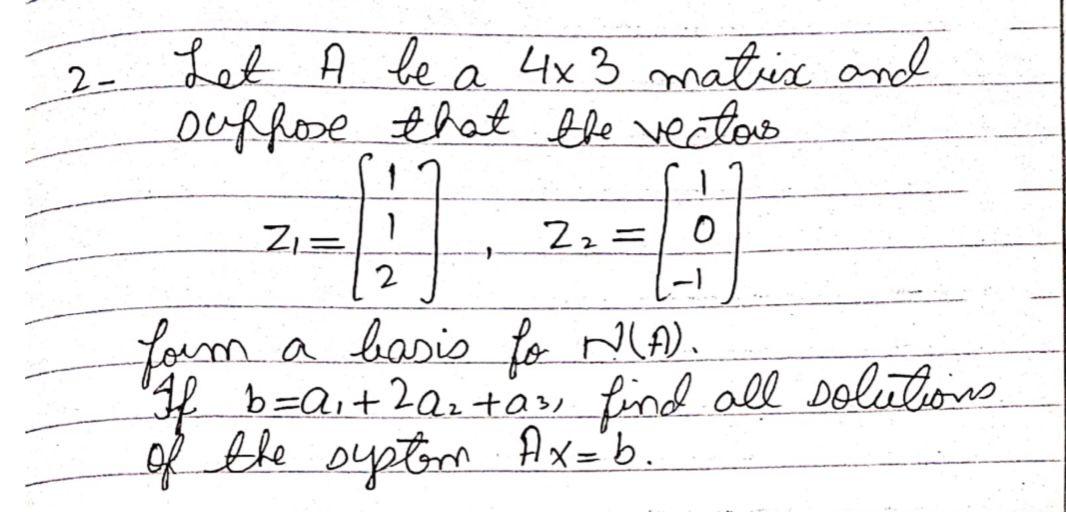 2- Let A be a 4x3 matrix and
suppose that the vectors
Z₁ = [1 1 2], Z₂ = [1 0 -1]
form a basis for N(A).
If b=a₁+2a₂+a₃, find all solutions
of the system Ax=b.